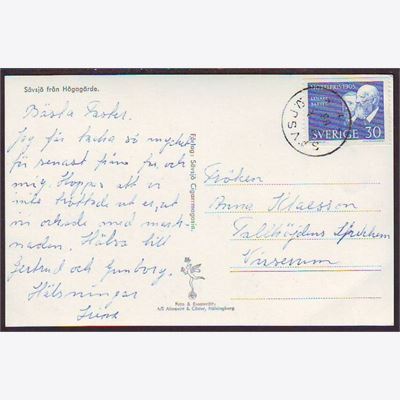 Sävsjö från Högagärde.
Bästa Faster.
Jag får tacka så mycket
för senast från oss och
mig. Hoppas att vi
inte tröttade ut er, att
ni orkade med mark-
naden. Hälsa till
Gertrud och Gunborg.
Hälsningar
Förlag: Sävsjö Cigarrmagasin.
Foto & Ensamrätt:
A/B Almquist & Cöster, Hälsingborg
NOBELPRIS 1905
SVERIGE 30
SÄVSJÖ
Fröken
Anna Klaesson
Tallhöjdens
Virserum